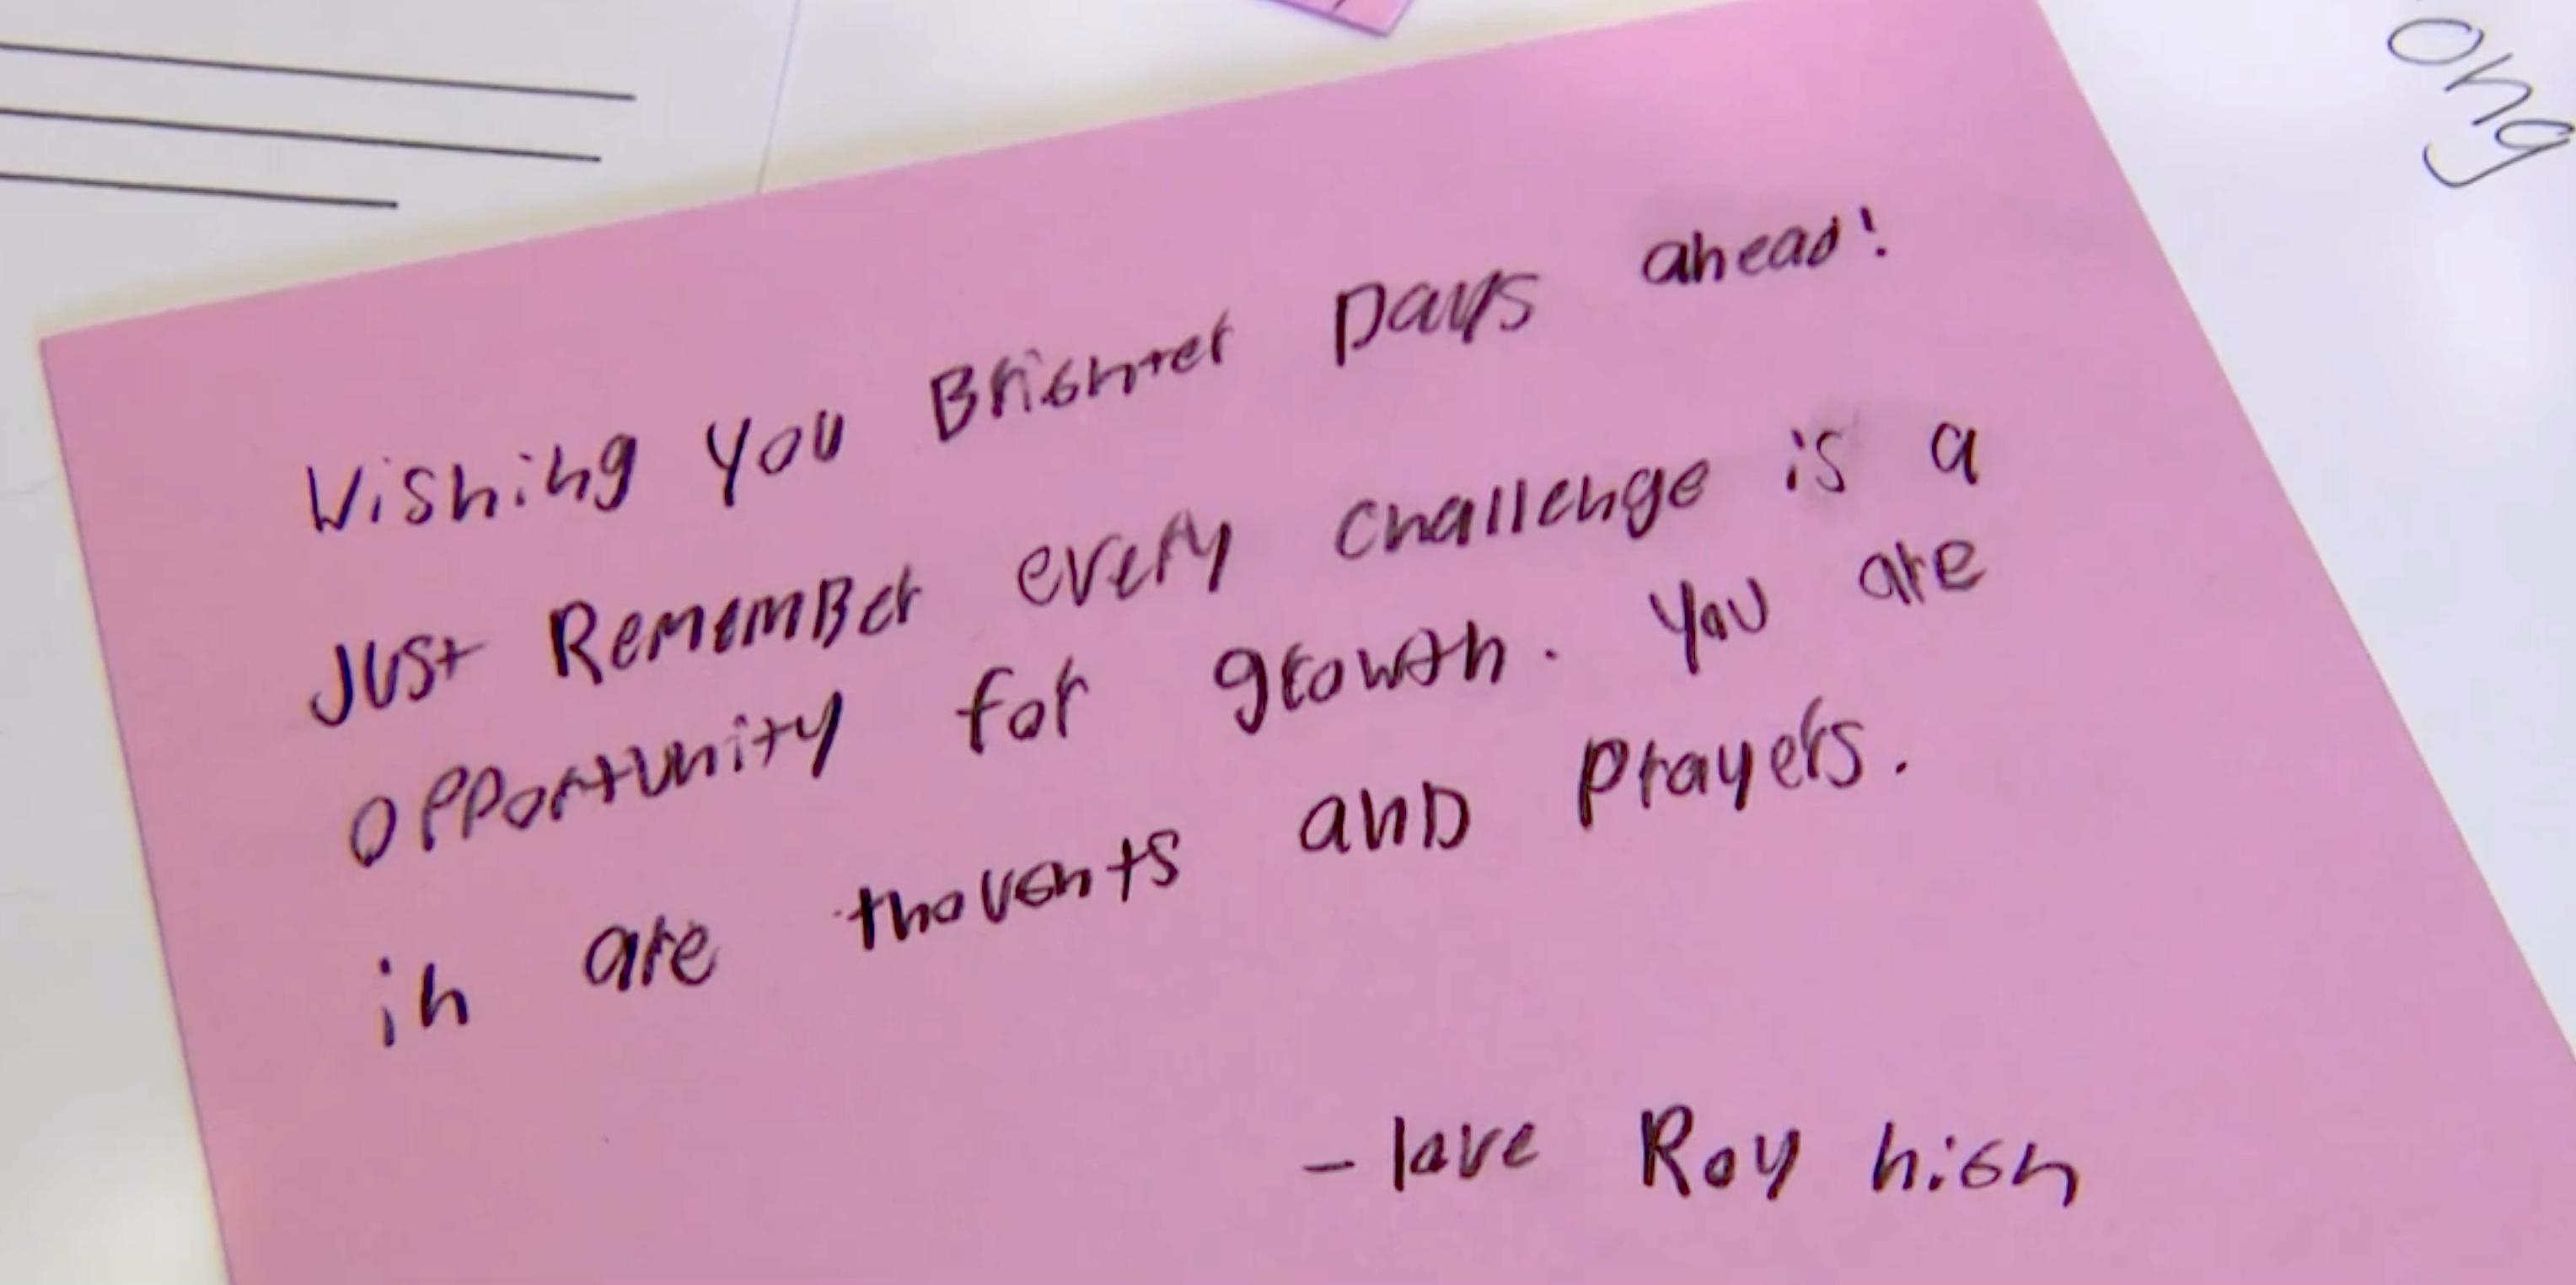 Wishing you Brighter Days ahead!
Just Remember every challenge is a
opportunity for growth. you are
in are thoughts and prayers.
- love Roy high
ong